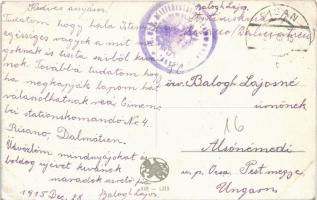 Kedves anyám!
Tudatom hogy hála Isten
egésséges vagyok a mit
goknak is tiszta szivből kivá
nok. Továbbá tudatom hogy
ha megkapják lapom hát
válaszolhatnak reá Cimem
bei stationskomando No 4.
Risano, Dalmátien.
Üdvözlöm mindnyájokat és
boldog ujévet kivánok
maradok szerető fia
1915 Dec. 28 Balogh Lajos
Balogh Lajos
RISANO
özv. Balogh Lajosné
úrnőnek
16
Alsónémedi
u. p. Ócsa. Pest megye.
Ungarn